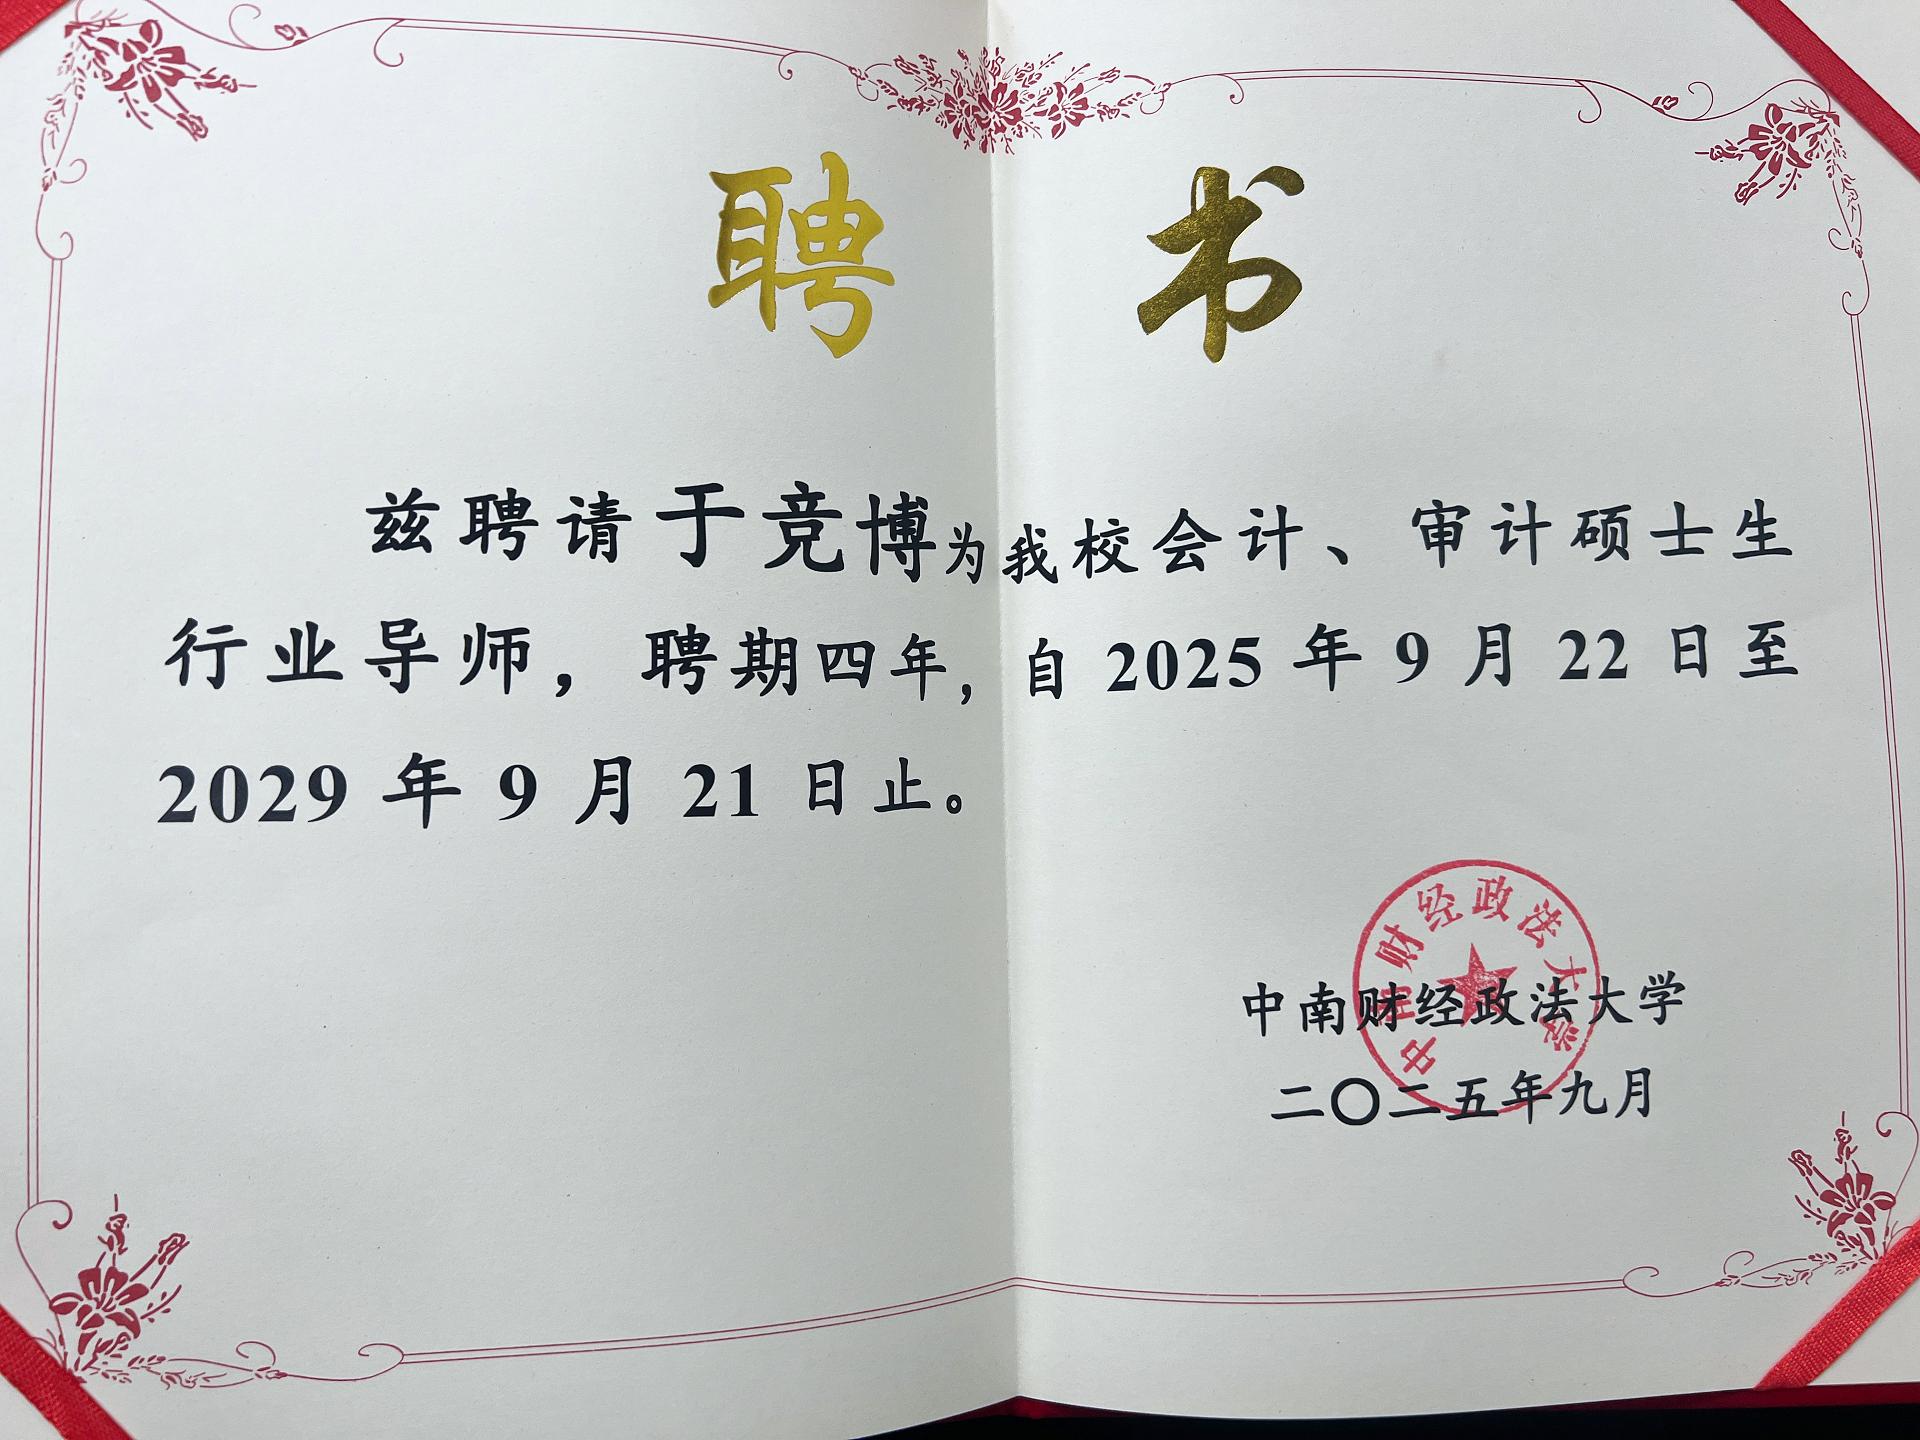 聘书
兹聘请于竞博为我校会计、审计硕士生
行业导师，聘期四年，自 2025 年 9 月 22 日至
2029 年 9 月 21 日止。
中南财经政法大学
中南财经政法大学
二〇二五年九月